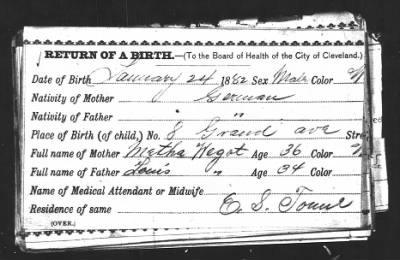 RETURN OF A BIRTH.—(To the Board of Health of the City of Cleveland.)
Date of Birth January 24 1882 Sex Male Color W
Nativity of Mother German
Nativity of Father " "
Place of Birth (of child,) No. 8 Grand ave Stre
Full name of Mother Metha Hegot Age 36 Color W
Full name of Father Louis " Age 34 Color
Name of Medical Attendant or Midwife
Residence of same E. S.
(OVER.)